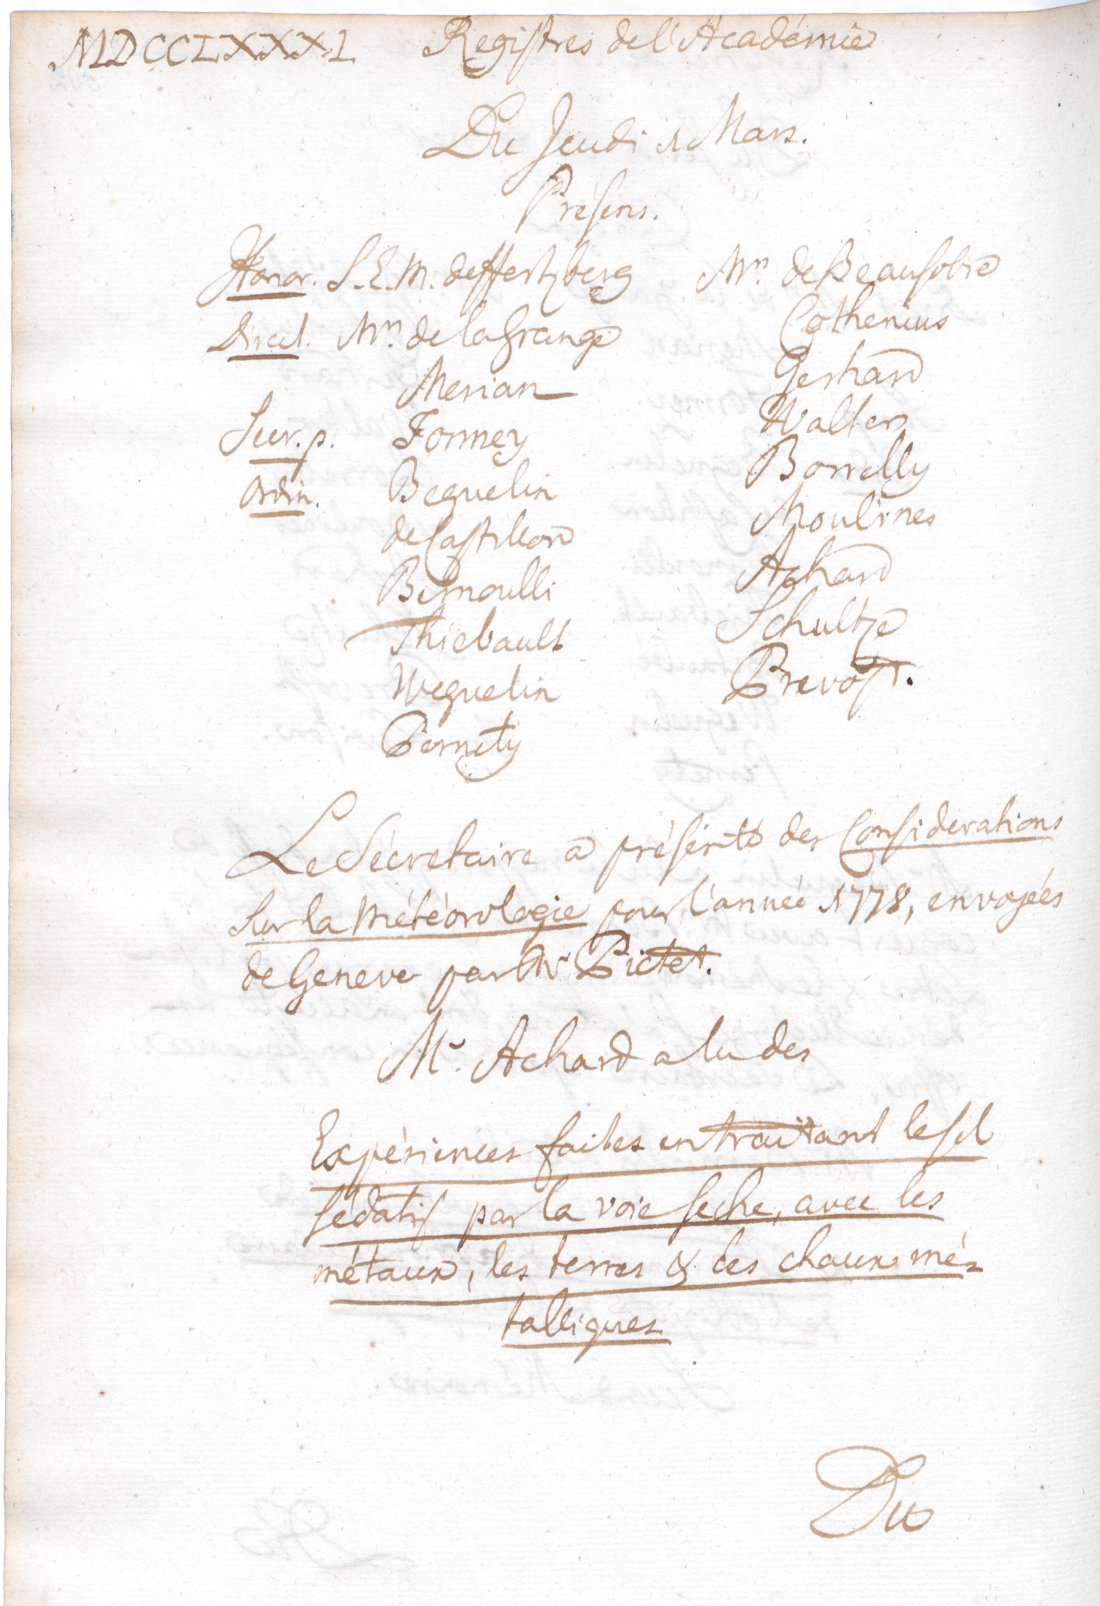 MDCCLXXXI. Registres de l'Académie
Du Jeudi 1 Mars.
Présens.
Honor. S. E. M. de Hertzberg
Direct. Mrs. de la Grange
Merian
Secr. p. Formey
Ordin. Beguelin
de Castillon
Bernoulli
Thiébault
Weguelin
Pernety
Mrs. de Beausobre
Cothenius
Gerhard
Walter
Borrelly
Moulines
Achard
Schultze
Prevost.
Le Sécretaire a présenté des Considerations
sur la Météorologie pour l'année 1778, envoyées
de Geneve par Mr Pictet.
Mr. Achard a lu des
Expériences faites en traitant le sel
sédatif par la voie seche, avec les
métaux, les terres & les chaux mé-
talliques
Du